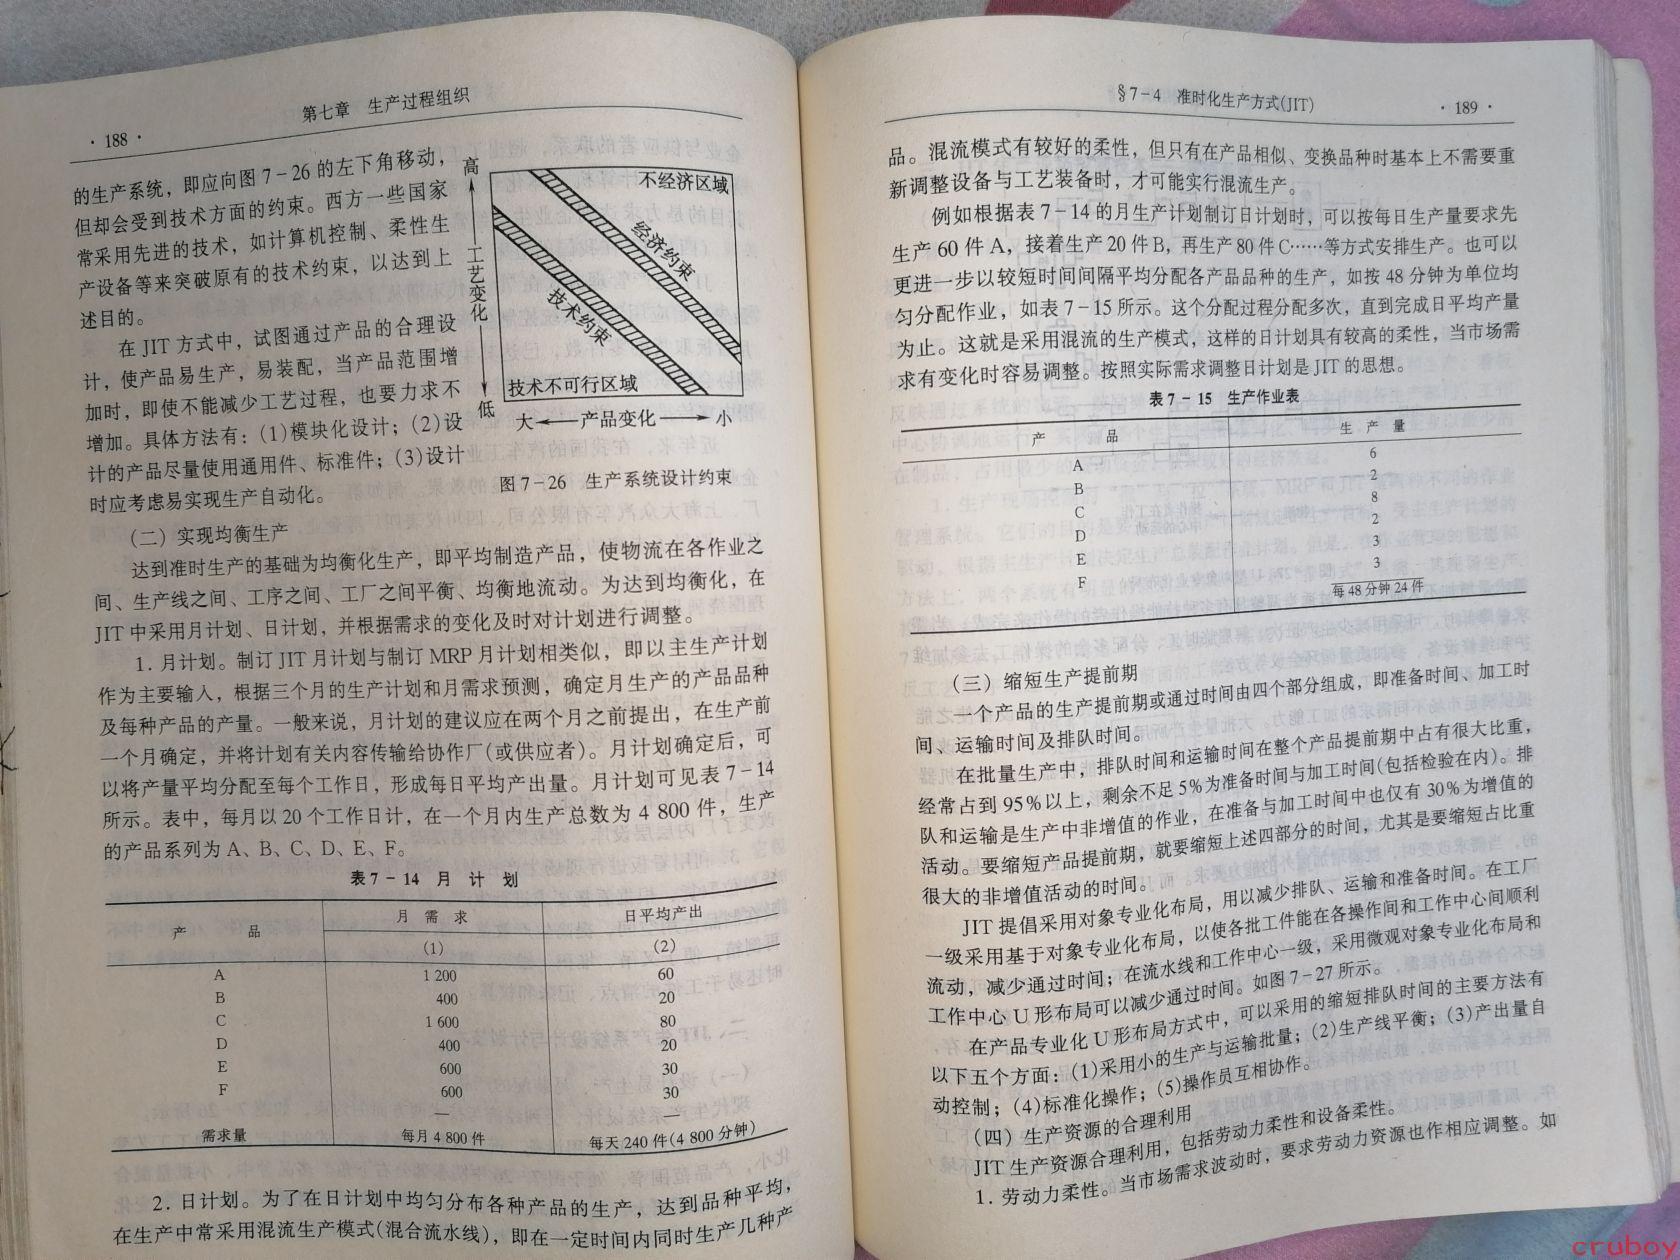 · 188 ·
第七章 生产过程组织
的生产系统，即应向图 7－26 的左下角移动，
但却会受到技术方面的约束。西方一些国家
常采用先进的技术，如计算机控制、柔性生
产设备等来突破原有的技术约束，以达到上
述目的。
在 JIT 方式中，试图通过产品的合理设
计，使产品易生产，易装配，当产品范围增
加时，即使不能减少工艺过程，也要力求不
增加。具体方法有：(1)模块化设计；(2)设
计的产品尽量使用通用件、标准件；(3)设计
时应考虑易实现生产自动化。
高
工艺变化
低
不经济区域
经济约束
技术约束
技术不可行区域
大 产品变化 小
图 7－26 生产系统设计约束
（二）实现均衡生产
达到准时生产的基础为均衡化生产，即平均制造产品，使物流在各作业之
间、生产线之间、工序之间、工厂之间平衡、均衡地流动。为达到均衡化，在
JIT 中采用月计划、日计划，并根据需求的变化及时对计划进行调整。
1. 月计划。制订 JIT 月计划与制订 MRP 月计划相类似，即以主生产计划
作为主要输入，根据三个月的生产计划和月需求预测，确定月生产的产品品种
及每种产品的产量。一般来说，月计划的建议应在两个月之前提出，在生产前
一个月确定，并将计划有关内容传输给协作厂(或供应者)。月计划确定后，可
以将产量平均分配至每个工作日，形成每日平均产出量。月计划可见表 7－14
所示。表中，每月以 20 个工作日计，在一个月内生产总数为 4 800 件，生产
的产品系列为 A、B、C、D、E、F。
表 7－14 月 计 划
产 品 月 需 求 日平均产出
(1) (2)
A 1 200 60
B 400 20
C 1 600 80
D 400 20
E 600 30
F 600 30
— —
需求量 每月 4 800 件 每天 240 件(4 800 分钟)
2. 日计划。为了在日计划中均匀分布各种产品的生产，达到品种平均，
在生产中常采用混流生产模式(混合流水线)，即在一定时间内同时生产几种产
§7－4 准时化生产方式(JIT)
· 189 ·
品。混流模式有较好的柔性，但只有在产品相似、变换品种时基本上不需要重
新调整设备与工艺装备时，才可能实行混流生产。
例如根据表 7－14 的月生产计划制订日计划时，可以按每日生产量要求先
生产 60 件 A，接着生产 20 件 B，再生产 80 件 C……等方式安排生产。也可以
更进一步以较短时间间隔平均分配各产品品种的生产，如按 48 分钟为单位均
匀分配作业，如表 7－15 所示。这个分配过程分配多次，直到完成日平均产量
为止。这就是采用混流的生产模式，这样的日计划具有较高的柔性，当市场需
求有变化时容易调整。按照实际需求调整日计划是 JIT 的思想。
表 7－15 生产作业表
产 品 生 产 量
A 6
B 2
C 8
D 2
E 3
F 3
每 48 分钟 24 件
（三）缩短生产提前期
一个产品的生产提前期或通过时间由四个部分组成，即准备时间、加工时
间、运输时间及排队时间。
在批量生产中，排队时间和运输时间在整个产品提前期中占有很大比重，
经常占到 95％以上，剩余不足 5％为准备时间与加工时间(包括检验在内)。排
队和运输是生产中非增值的作业，在准备与加工时间中也仅有 30％为增值的
活动。要缩短产品提前期，就要缩短上述四部分的时间，尤其是要缩短占比重
很大的非增值活动的时间。
JIT 提倡采用对象专业化布局，用以减少排队、运输和准备时间。在工厂
一级采用基于对象专业化布局，以使各批工件能在各操作间和工作中心间顺利
流动，减少通过时间；在流水线和工作中心一级，采用微观对象专业化布局和
工作中心 U 形布局可以减少通过时间。如图 7－27 所示。
在产品专业化 U 形布局方式中，可以采用的缩短排队时间的主要方法有
以下五个方面：(1)采用小的生产与运输批量；(2)生产线平衡；(3)产出量自
动控制；(4)标准化操作；(5)操作员互相协作。
（四）生产资源的合理利用
JIT 生产资源合理利用，包括劳动力柔性和设备柔性。
1. 劳动力柔性。当市场需求波动时，要求劳动力资源也作相应调整。如
cruboy